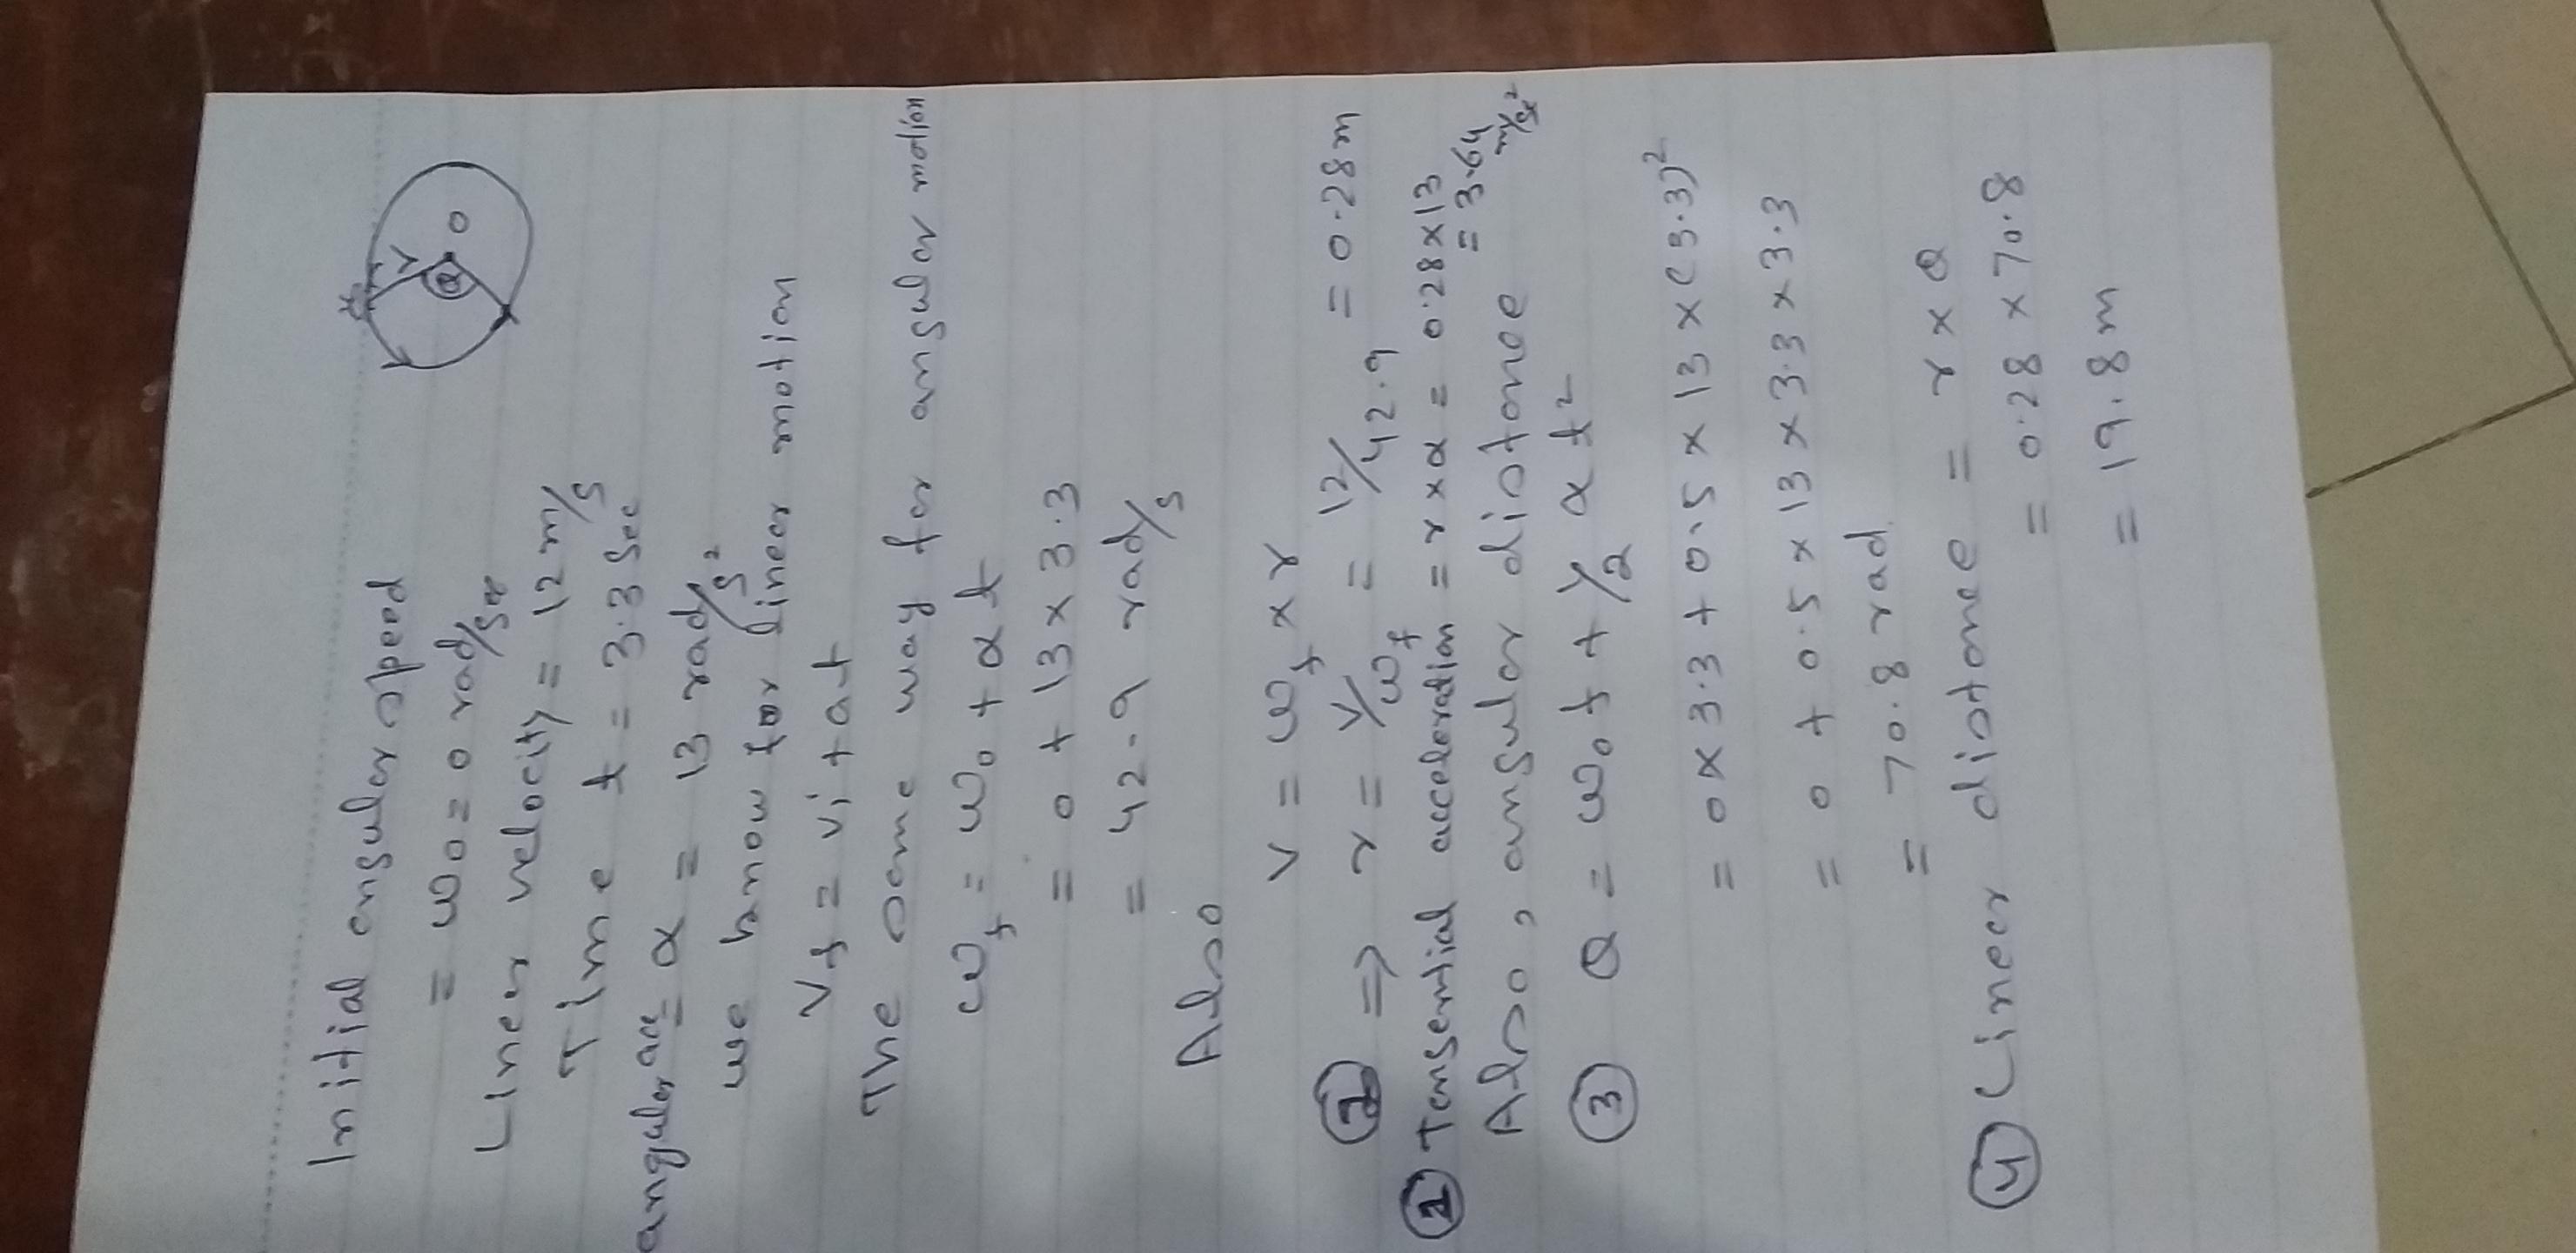 Initial angular speed
= ω0 = 0 rad/sec
Linear velocity = 12 m/s
Time t = 3.3 sec
angular acc = α = 13 rad/s²
we know for linear motion
Vf = Vi + at
The same way for angular motion
ωf = ω0 + αt
= 0 + 13 × 3.3
= 42.9 rad/s
Also
V = ωf × r
① ⇒ r = V/ωf = 12/42.9 = 0.28 m
② Tangential acceleration = r × α = 0.28 × 13
= 3.64 m/s²
Also, angular distance
③ Q = ω0t + 1/2 αt²
= 0 × 3.3 + 0.5 × 13 × (3.3)²
= 0 + 0.5 × 13 × 3.3 × 3.3
= 70.8 rad
④ Linear distance = r × Q
= 0.28 × 70.8
= 19.8 m
r
Q
O